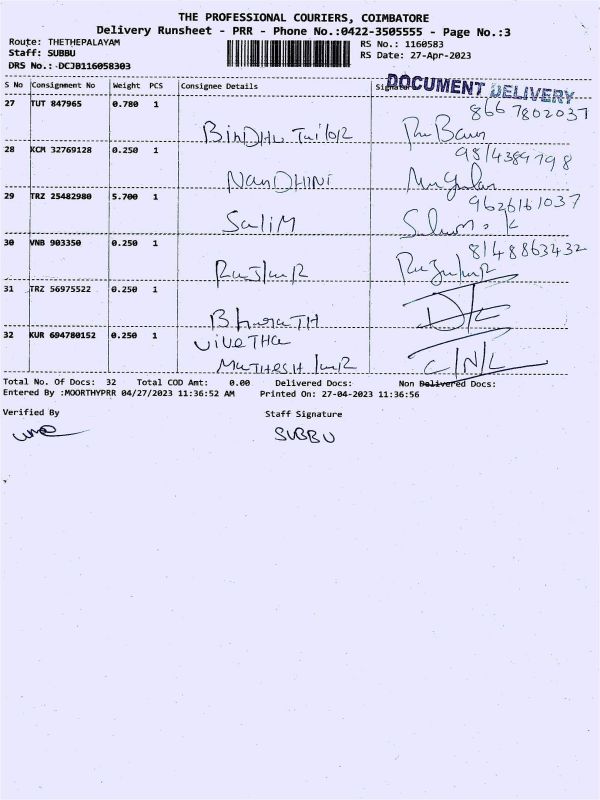 THE PROFESSIONAL COURIERS, COIMBATORE
Delivery Runsheet - PRR - Phone No.:0422-3505555 - Page No.:3
Route: THETHEPALAYAM RS No.: 1160583
Staff: SUBBU RS Date: 27-Apr-2023
DRS No.: DCJB116058303
DOCUMENT DELIVERY
S No Consignment No Weight PCS Consignee Details Signature
27 TUT 847965 0.780 1 8667802037
BinDHu Tailor
28 KCM 32769128 0.250 1
NanDHiNi
29 TRZ 25482980 5.700 1 9626161037
SaliM
30 VNB 903350 0.250 1 8148863432
31 TRZ 56975522 0.250 1
BharaTH
32 KUR 694780152 0.250 1 viveTHa
C/N/L
Total No. Of Docs: 32 Total COD Amt: 0.00 Delivered Docs: Non Delivered Docs:
Entered By :MOORTHYPRR 04/27/2023 11:36:52 AM Printed On: 27-04-2023 11:36:56
Verified By Staff Signature
SUBBU